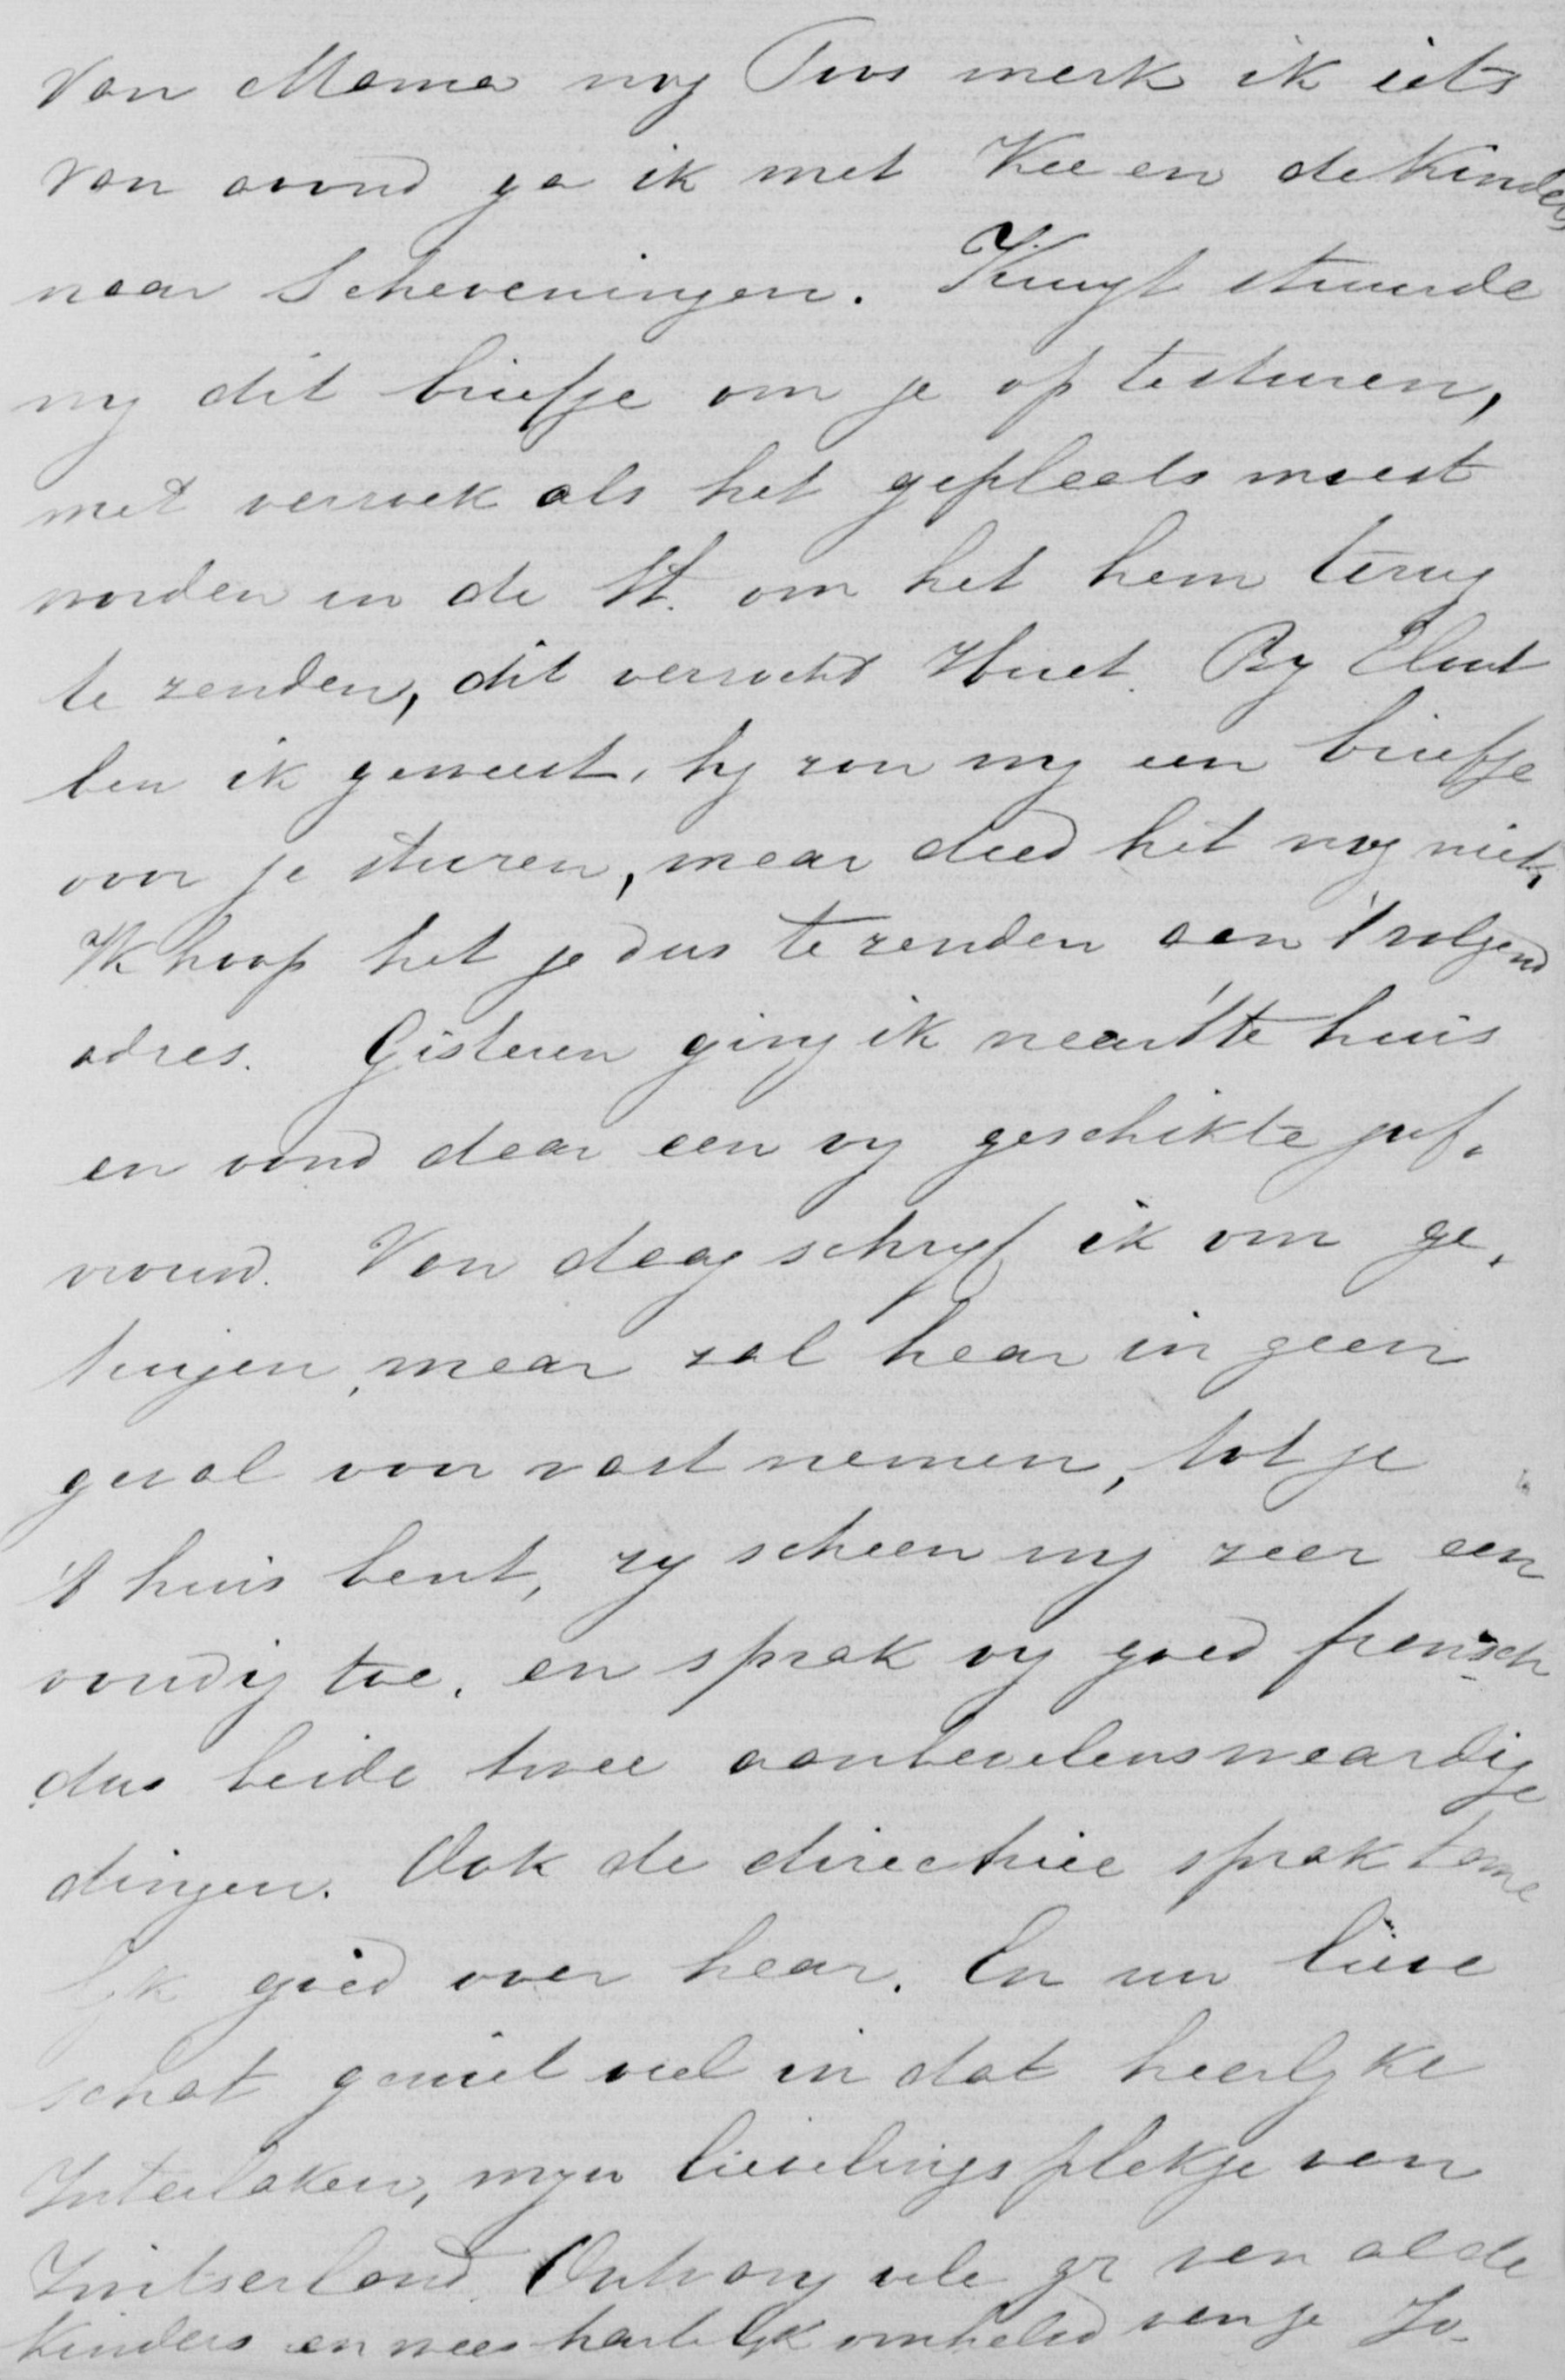 Van Mama nog Toos merk ik iets
van avond ga ik met Kee en de Kinders
naar Scheveningen. Kuyt stuurde
my dit briefje om je op testuren,
met verzoek als het geplaats moest
worden in de St. om het hem terug
te zenden, dit verzocht Huet. By Elout
ben ik geweest, hy zou my een briefje
voor je sturen, maar deed het nog niet,
Ik hoop het je dus te zenden aan 't volgend
adres. Gisteren ging ik naar 't te huis
en vond daar een vry geschikte juf.
vrouw. Van daag schryf ik om ge.
tuigen, maar zal haar in geen
geval voor vast nemen, tot je
't huis bent, zy scheen my zeer een
voudig toe, en sprak vry goed fransch
dus beide twee aanbevelenswaardige
dingen. Ook de directrice sprak tame
lyk goed over haar. En nu lieve
schat geniet veel in dat heerlyke
Interlaken, myn lievelingsplekje van
Zwitserland. Ontvang vele gr van al de
Kinders en wees hartelyk omhelsd van je Jo.